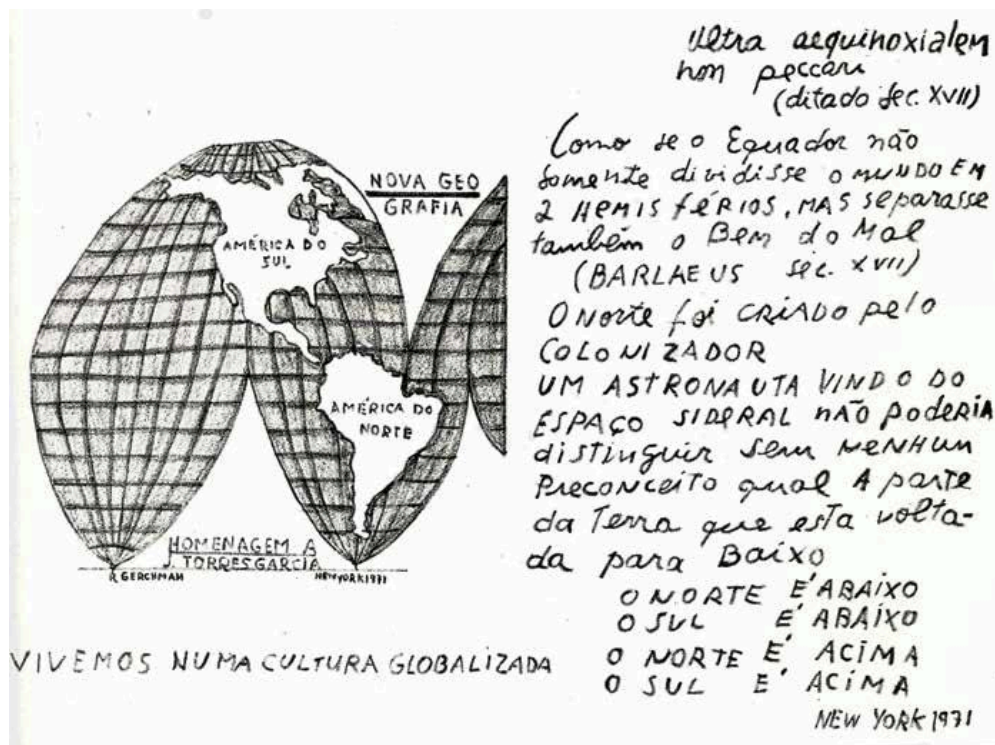 NOVA GEO
GRAFIA
AMÉRICA DO
SUL
AMÉRICA DO
NORTE
HOMENAGEM A
J. TORRESGARCIA
R GERCHMAN
NEWYORK1971
VIVEMOS NUMA CULTURA GLOBALIZADA
Ultra aequinoxialem
non peccari
(ditado sec. XVII)
Como se o Equador não
somente dividisse o MUNDO EM
2 HEMISférios, MAS separasse
também o Bem do Mal
(BARLAEUS sec. XVII)
O Norte foi CRIADO pelo
COLONIZADOR
UM ASTRONAUTA VINDO DO
ESPAÇO SIDERAL não PodeRIA
distinguir sem NENHUM
PreconCeito qual A parte
da Terra que esta volta-
da para Baixo
O NORTE É ABAIXO
O SUL É ABAÍXO
O NORTE É ACIMA
O SUL É ACÍMA
NEW YORK 1971